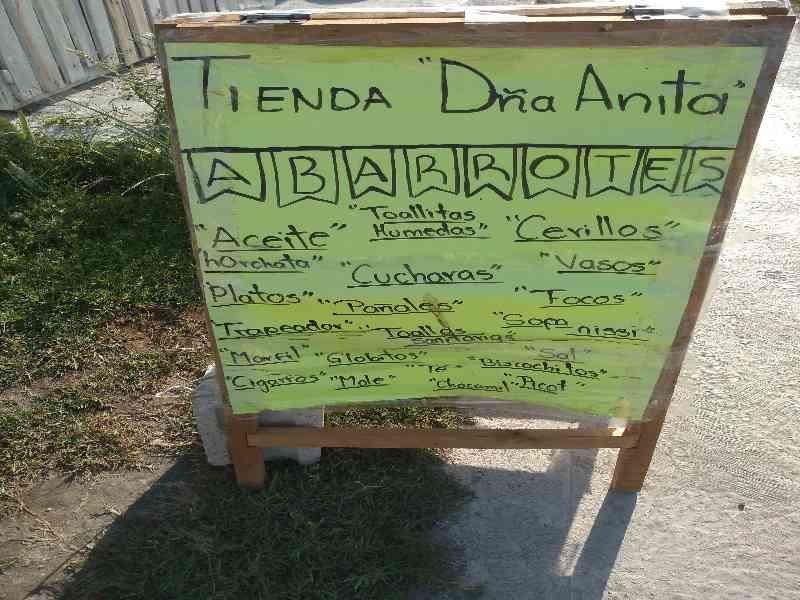 TIENDA "Dña Anita"
ABARROTES
"Aceite" "Toallitas Humedas" "Cerillos"
hOrchata" "Cucharas" "Vasos"
Platos" "Pañales" "Focos"
Trapeador" "Toallas sanitarias" "Sopa nissi"
"Marfil" "Globitos" "Te" "Sal"
"Biscochitos"
"Cigarros" "Mole" "Chocomil"